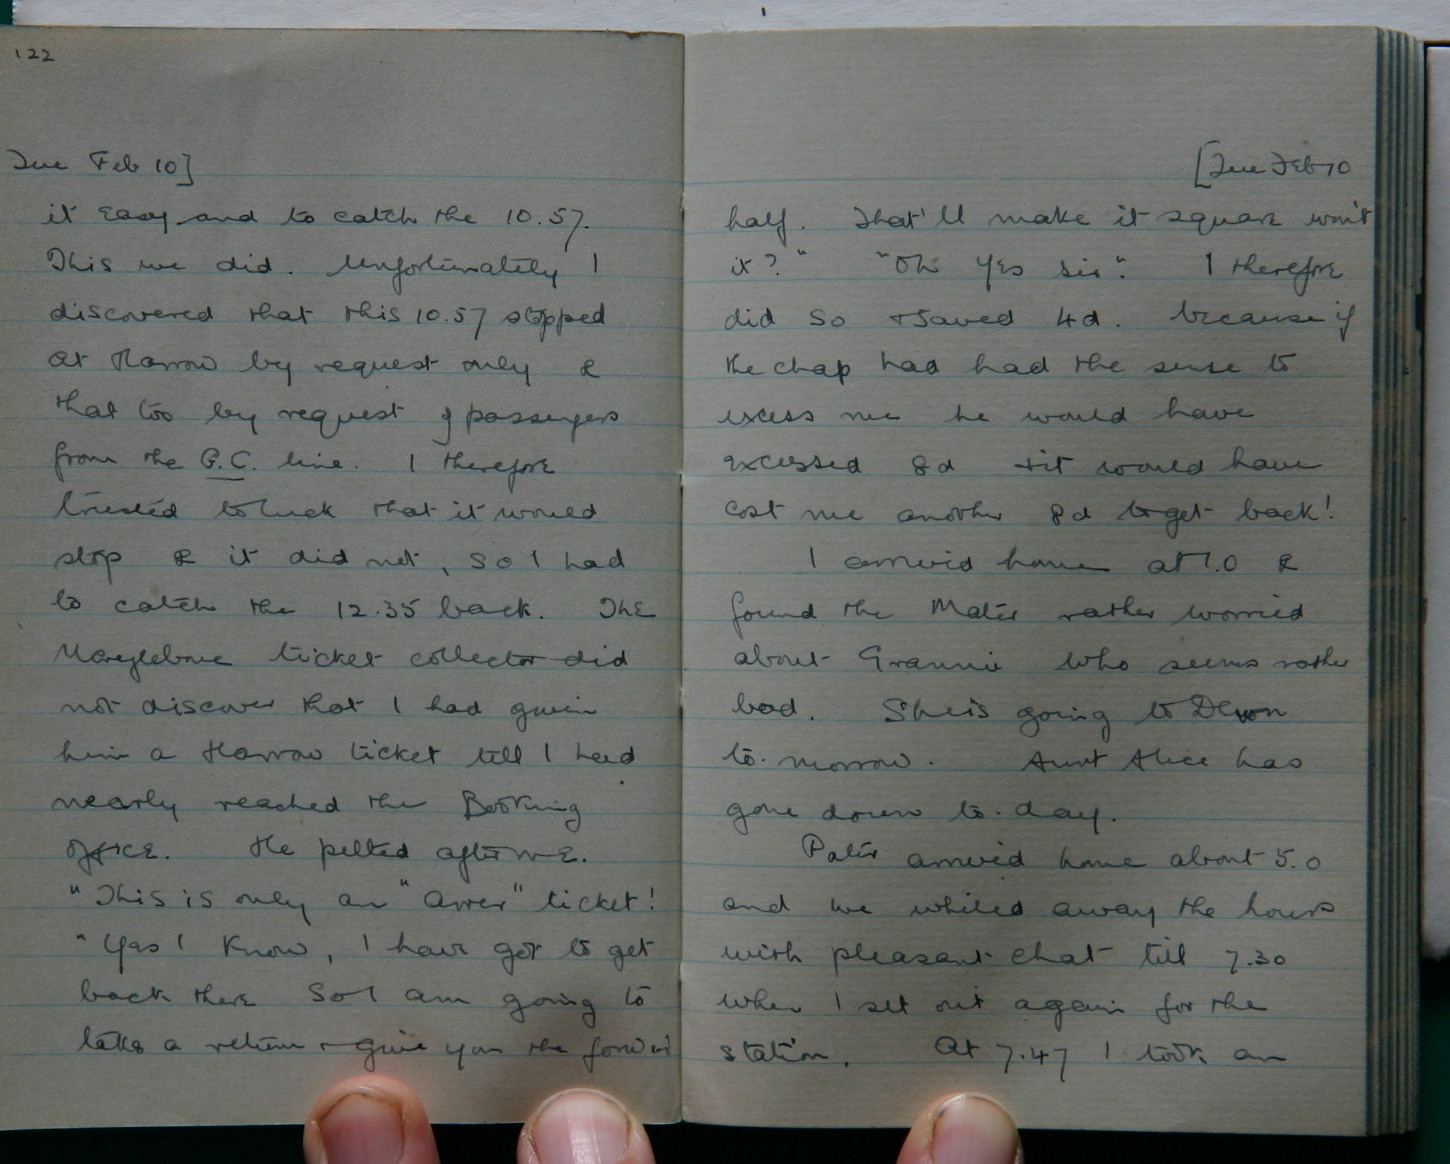 122
Tue Feb 10]
it easy and to catch the 10.57.
This we did. Unfortunately I
discovered that this 10.57 stopped
at Harrow by request only &
that too by request of passengers
from the G.C. line. I therefore
trusted to luck that it would
stop & it did not, so I had
to catch the 12.35 back. The
Marylebone ticket collector did
not discover that I had given
him a Harrow ticket till I had
nearly reached the Booking
office. He pelted after me.
"This is only an "Arrer" ticket!
"Yes I know, I have got to get
back there so I am going to
take a return & give you the forward
[Tue Feb 10
half. That'll make it square won't
it?" "Oh yes sir". I therefore
did so & saved 4d. because if
the chap had had the sense to
excess me he would have
excessed 8d & it would have
cost me another 8d to get back!
I arrived home at 1.0 &
found the Mater rather worried
about Grannie who seems rather
bad. She is going to Devon
to-morrow. Aunt Alice has
gone down to-day.
Pater arrived home about 5.0
and we whiled away the hours
with pleasant chat till 7.30
when I set out again for the
station. At 7.47 I took an